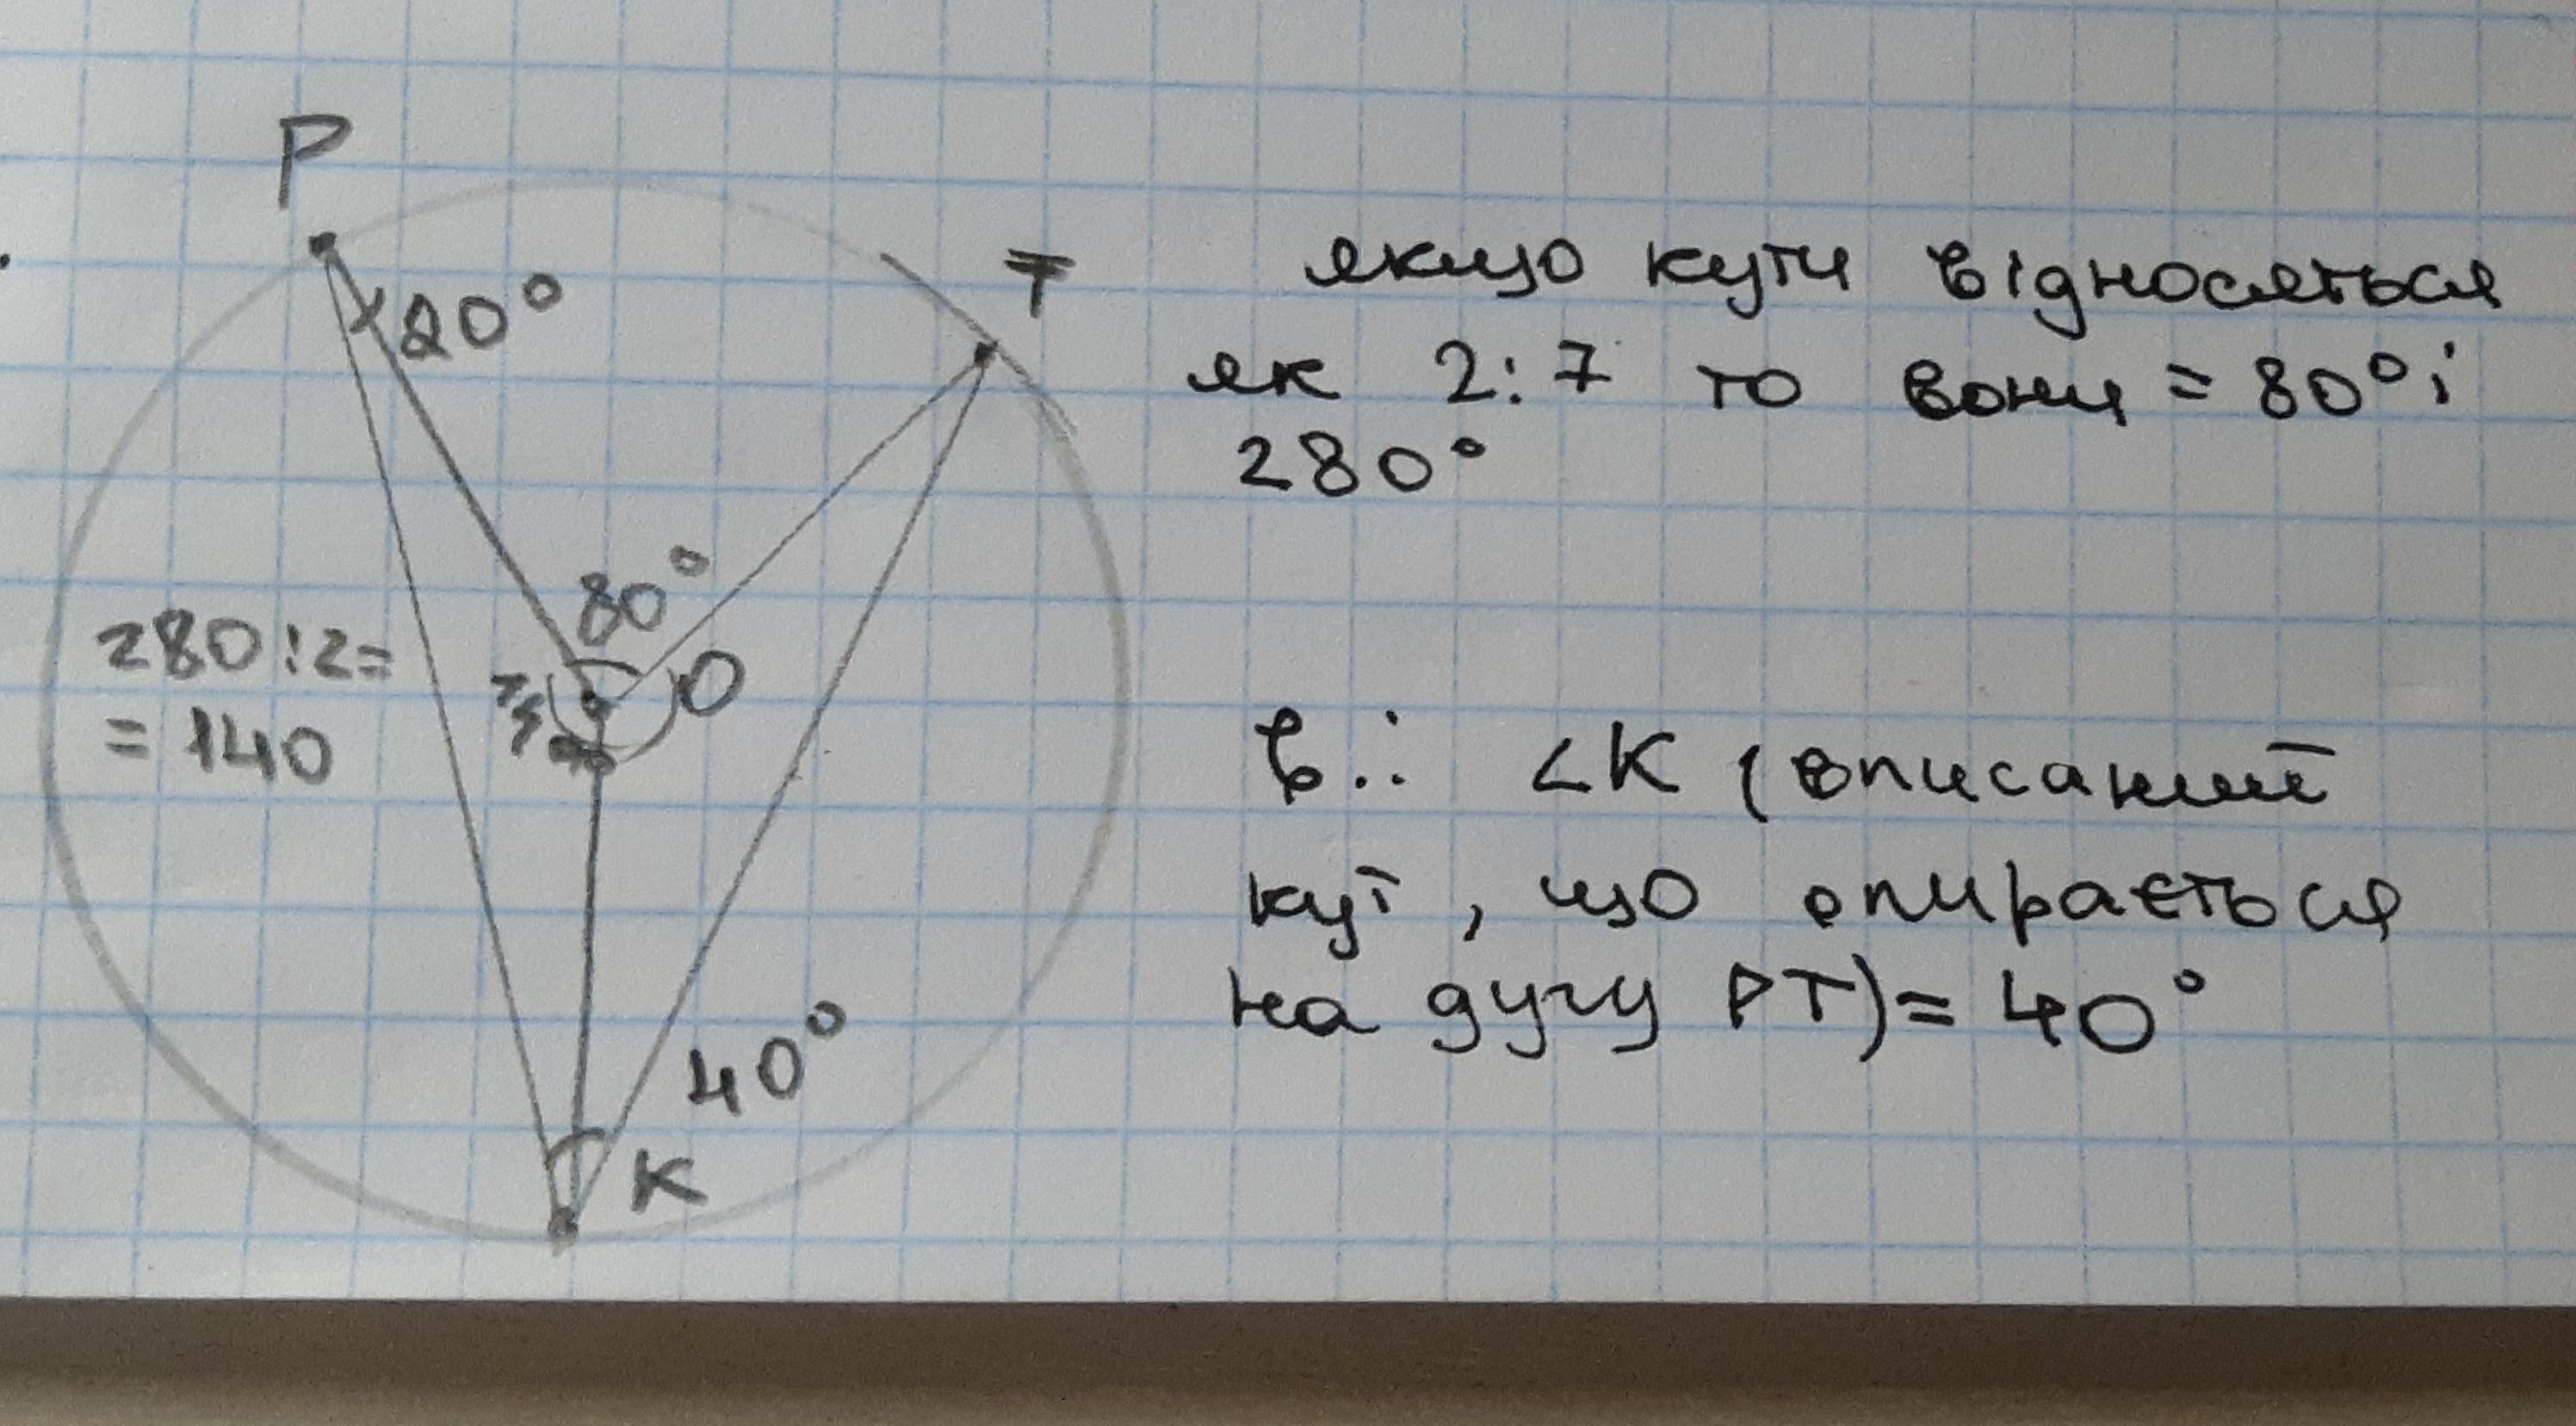 P
T
20°
якщо кути відносяться
як 2:7 то вони = 80° і
280°
80°
O
280:2=
= 140
В.: ∠K (вписаний
кут, що опирається
на дугу PT) = 40°
40°
K